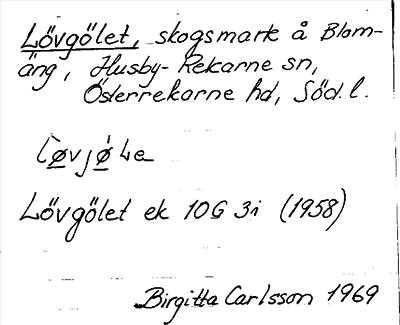 Lövgölet, skogsmark å Blom-
äng, Husby-Rekarne sn,
Österrekarne hd, Söd. l.
Lövgölet ek 10G 3i (1958)
Birgitta Carlsson 1969